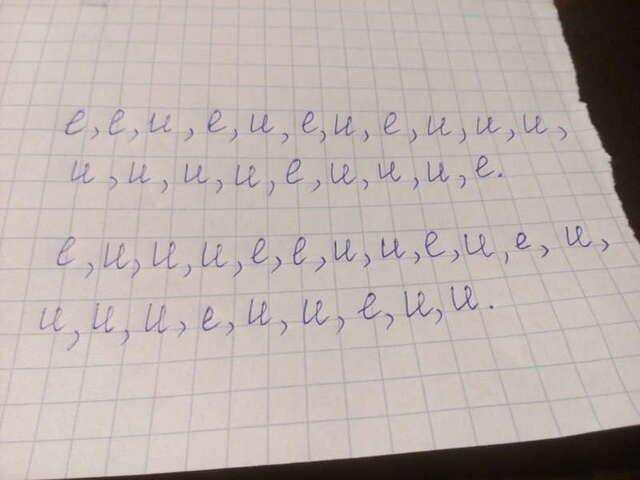 е, е, и, е, и, е, и, е, и, и, и,
и, и, и, и, е, и, и, и, е.
е, и, и, и, е, е, и, и, е, и, е, и,
и, и, и, е, и, и, е, и, и.